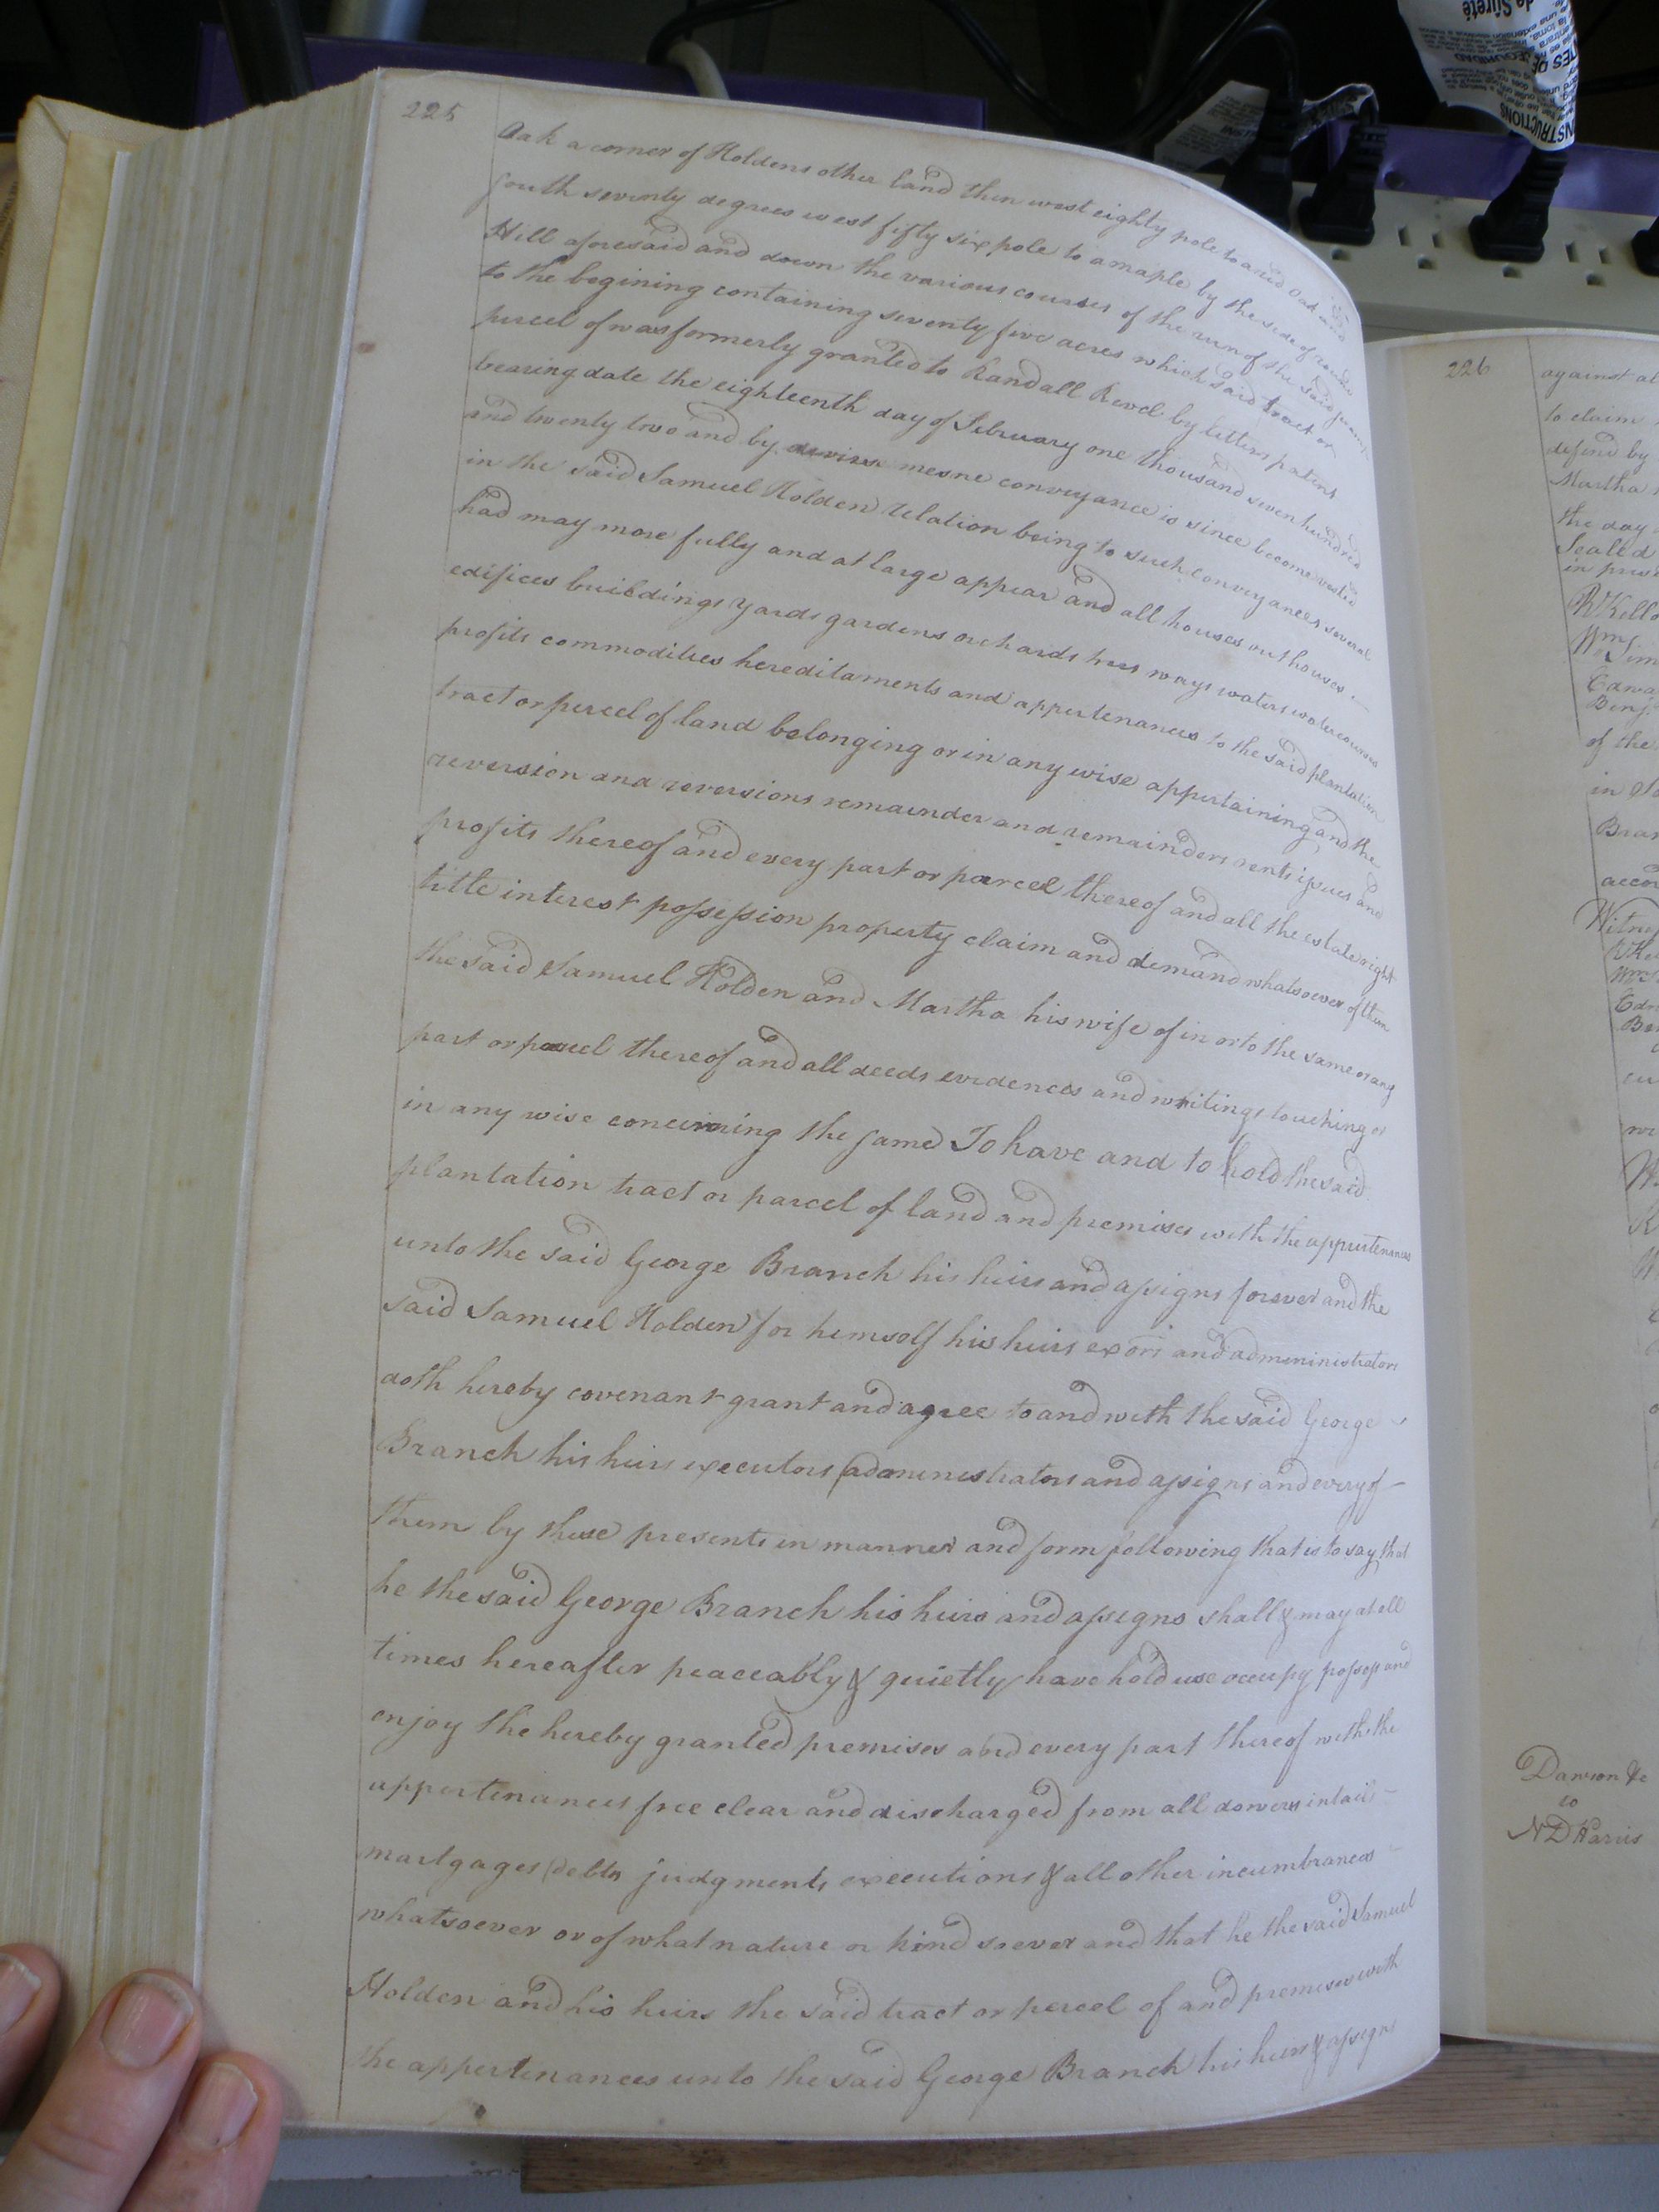 225
Oak a corner of Holdens other land then west eighty pole to a red Oak and
south seventy degrees west fifty six pole to a maple by the side of
Hill aforesaid and down the various courses of the run of the said
to the begining containing seventy five acres which said tract or
percel of was formerly granted to Randall Revel by letters patent
bearing date the eighteenth day of February one thousand seven hundred
and twenty two and by mesne conveyance is since become vested
in the said Samuel Holden relation being to such conveyances several
had may more fully and at large appear and all houses outhouses
edifices buildings yards gardens orchards trees ways waters watercourses
profits commodities hereditaments and appertenances to the said plantation
tract or percel of land belonging or in any wise appertaining and the
reversion and reversions remainder and remainders rents issues and
profits thereof and every part or parcel thereof and all the estate right
title interest possession property claim and demand whatsoever of them
the said Samuel Holden and Martha his wife of in or to the same or any
part or parcel thereof and all deeds evidences and writings touching or
in any wise concerning the same To have and to hold the said
plantation tract or parcel of land and premises with the appurtenances
unto the said George Branch his heirs and assigns forever and the
said Samuel Holden for himself his heirs exors and admininistrators
doth hereby covenant grant and agree to and with the said George
Branch his heirs executors administrators and assigns and every of
them by these presents in manner and form following that is to say that
he the said George Branch his heirs and assigns shall & may at all
times hereafter peaceably & quietly have hold use occupy possess and
enjoy the hereby granted premises and every part thereof with the
appertenances free clear and discharged from all dowers intails
mortgages debts judgments executions & all other incumbrances
whatsoever or of what nature or kind soever and that he the said Samuel
Holden and his heirs the said tract or percel of and premises with
the appertenances unto the said George Branch his heirs & assigns
226
against al
to claim
defend by
Martha
the day
Sealed
in prese
Wm Sim
Edwa
Benj.
of the
Bran
accor
Witne
Dawson &c
to
ND Harris
INSTRUCTIONS
de Sûreté